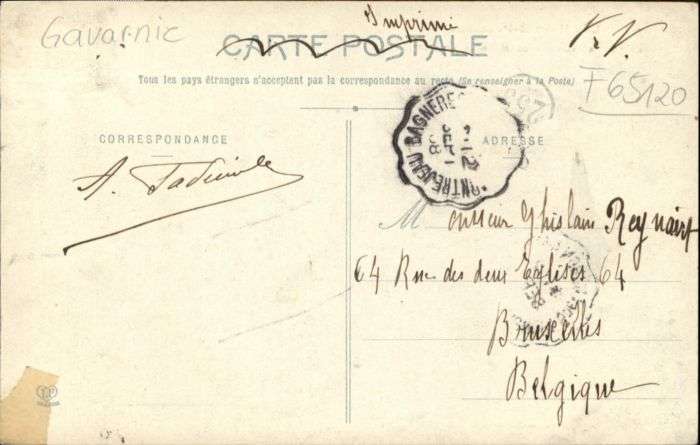 Gavarnie
Imprimé
V. V.
CARTE POSTALE
Tous les pays étrangers n'acceptent pas la correspondance au recto (Se renseigner à la Poste)
F65120
CORRESPONDANCE
ADRESSE
MONTRÉJEAU BAGNERES
A.
Monsieur Ghislain Reynaert
64 Rue des deux Eglises 64
Bruxelles
Belgique